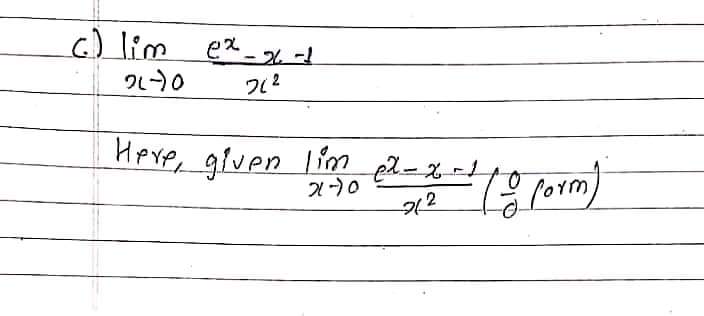 c.) lim x→0 (e^x - x - 1)/x^2
Here, given lim x→0 (e^x - x - 1)/x^2 (0/0 form)